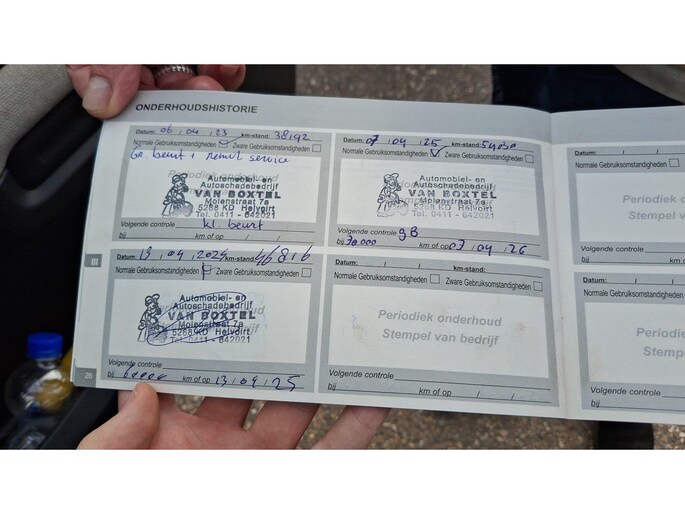 ONDERHOUDSHISTORIE
Datum: 06 / 04 / 23 km-stand: 38192
Normale Gebruiksomstandigheden Zware Gebruiksomstandigheden
beurt + service
Automobiel- en
Autoschadebedrijf
VAN BOXTEL
Molenstraat 7a
5268 KD Helvoirt
Tel. 0411 - 642021
Volgende controle kl beurt
bij km of op / /
Datum: 07 / 04 / 25 km-stand:
Normale Gebruiksomstandigheden Zware Gebruiksomstandigheden
Automobiel- en
Autoschadebedrijf
VAN BOXTEL
Molenstraat 7a
5268 KD Helvoirt
Tel. 0411 - 642021
Volgende controle gB
bij km of op 07 / 04 / 26
Datum: 13 / 04 / 2024 km-stand: 46816
Normale Gebruiksomstandigheden Zware Gebruiksomstandigheden
Automobiel- en
Autoschadebedrijf
VAN BOXTEL
Molenstraat 7a
5268 KD Helvoirt
Tel. 0411 - 642021
Volgende controle
bij km of op 13 / 04 / 25
Datum: / / km-stand:
Normale Gebruiksomstandigheden Zware Gebruiksomstandigheden
Periodiek onderhoud
Stempel van bedrijf
Volgende controle
bij km of op / /
Datum: / /
Normale Gebruiksomstandigheden
Periodiek
Stempel van
Volgende controle
bij
Datum: / /
Normale Gebruiksomstandigheden
Periodiek
Stempel
Volgende controle
bij
III
26